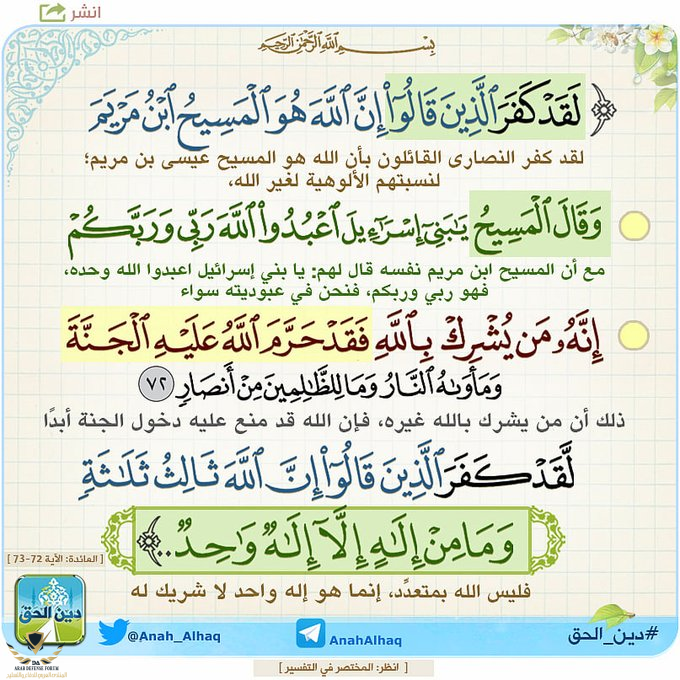 انشر
بِسْمِ اللَّهِ الرَّحْمَٰنِ الرَّحِيمِ
﴿ لَقَدْ كَفَرَ الَّذِينَ قَالُوٓا۟ إِنَّ اللَّهَ هُوَ الْمَسِيحُ ابْنُ مَرْيَمَ
لقد كفر النصارى القائلون بأن الله هو المسيح عيسى بن مريم؛
لنسبتهم الألوهية لغير الله،
وَقَالَ الْمَسِيحُ يَٰبَنِىٓ إِسْرَٰٓءِيلَ اعْبُدُوا۟ اللَّهَ رَبِّى وَرَبَّكُمْ
مع أن المسيح ابن مريم نفسه قال لهم: يا بني إسرائيل اعبدوا الله وحده،
فهو ربي وربكم، فنحن في عبوديته سواء
إِنَّهُۥ مَن يُشْرِكْ بِاللَّهِ فَقَدْ حَرَّمَ اللَّهُ عَلَيْهِ الْجَنَّةَ
وَمَأْوَىٰهُ النَّارُ وَمَا لِلظَّٰلِمِينَ مِنْ أَنصَارٍ ٧٢
ذلك أن من يشرك بالله غيره، فإن الله قد منع عليه دخول الجنة أبدًا
لَّقَدْ كَفَرَ الَّذِينَ قَالُوٓا۟ إِنَّ اللَّهَ ثَالِثُ ثَلَٰثَةٍ
وَمَا مِنْ إِلَٰهٍ إِلَّآ إِلَٰهٌ وَٰحِدٌ.. ﴾
[ المائدة: الآية 72-73 ]
فليس الله بمتعدِّد، إنما هو إله واحد لا شريك له
دين الحق
@Anah_Alhaq
AnahAlhaq
#دين_الحق
ARAB DEFENSE FORUM
[ انظر: المختصر في التفسير ]